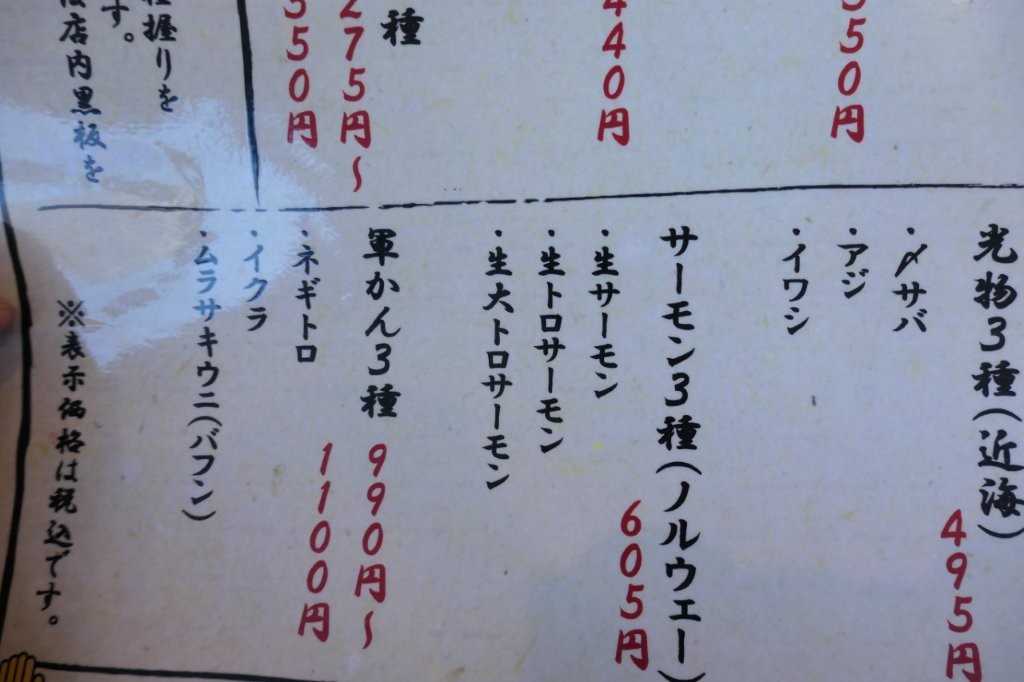 550円
440円
種
275円〜
550円
握りを
す。
店内黒板を
光物3種(近海)
495円
・〆サバ
・アジ
・イワシ
サーモン3種(ノルウェー)
605円
・生サーモン
・生トロサーモン
・生大トロサーモン
軍かん3種
990円〜
1100円
・ネギトロ
・イクラ
・ムラサキウニ(バフン)
※表示価格は税込です。